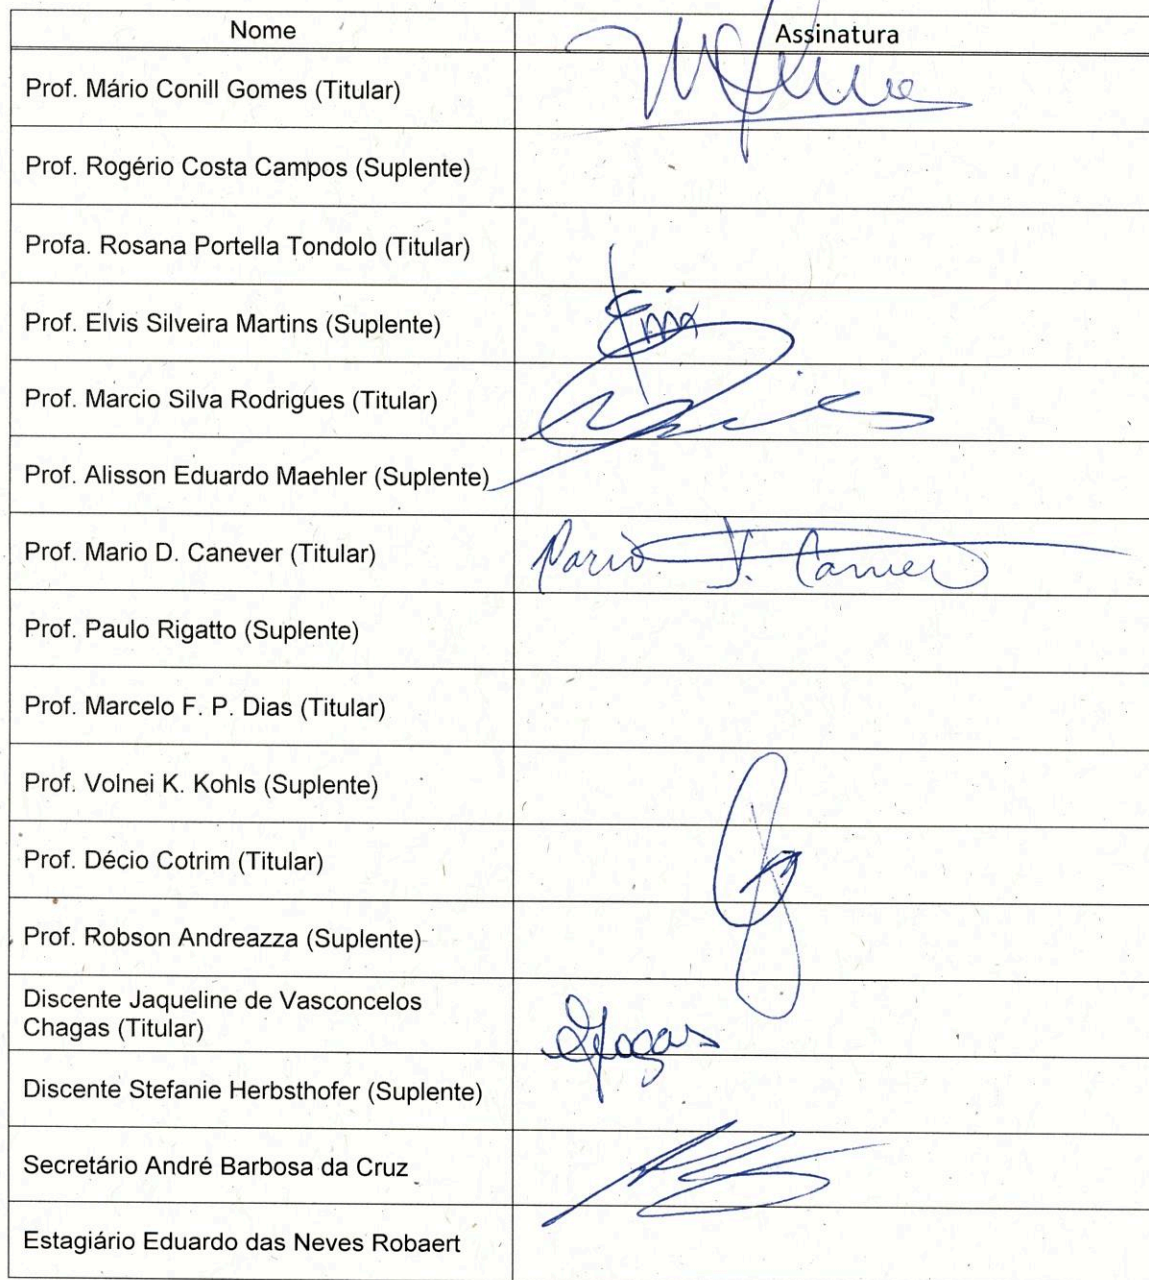 Nome Assinatura
Prof. Mário Conill Gomes (Titular)
Prof. Rogério Costa Campos (Suplente)
Profa. Rosana Portella Tondolo (Titular)
Prof. Elvis Silveira Martins (Suplente)
Prof. Marcio Silva Rodrigues (Titular)
Prof. Alisson Eduardo Maehler (Suplente)
Prof. Mario D. Canever (Titular) Mario D. Canever
Prof. Paulo Rigatto (Suplente)
Prof. Marcelo F. P. Dias (Titular)
Prof. Volnei K. Kohls (Suplente)
Prof. Décio Cotrim (Titular)
Prof. Robson Andreazza (Suplente)
Discente Jaqueline de Vasconcelos
Chagas (Titular)
Discente Stefanie Herbsthofer (Suplente)
Secretário André Barbosa da Cruz
Estagiário Eduardo das Neves Robaert